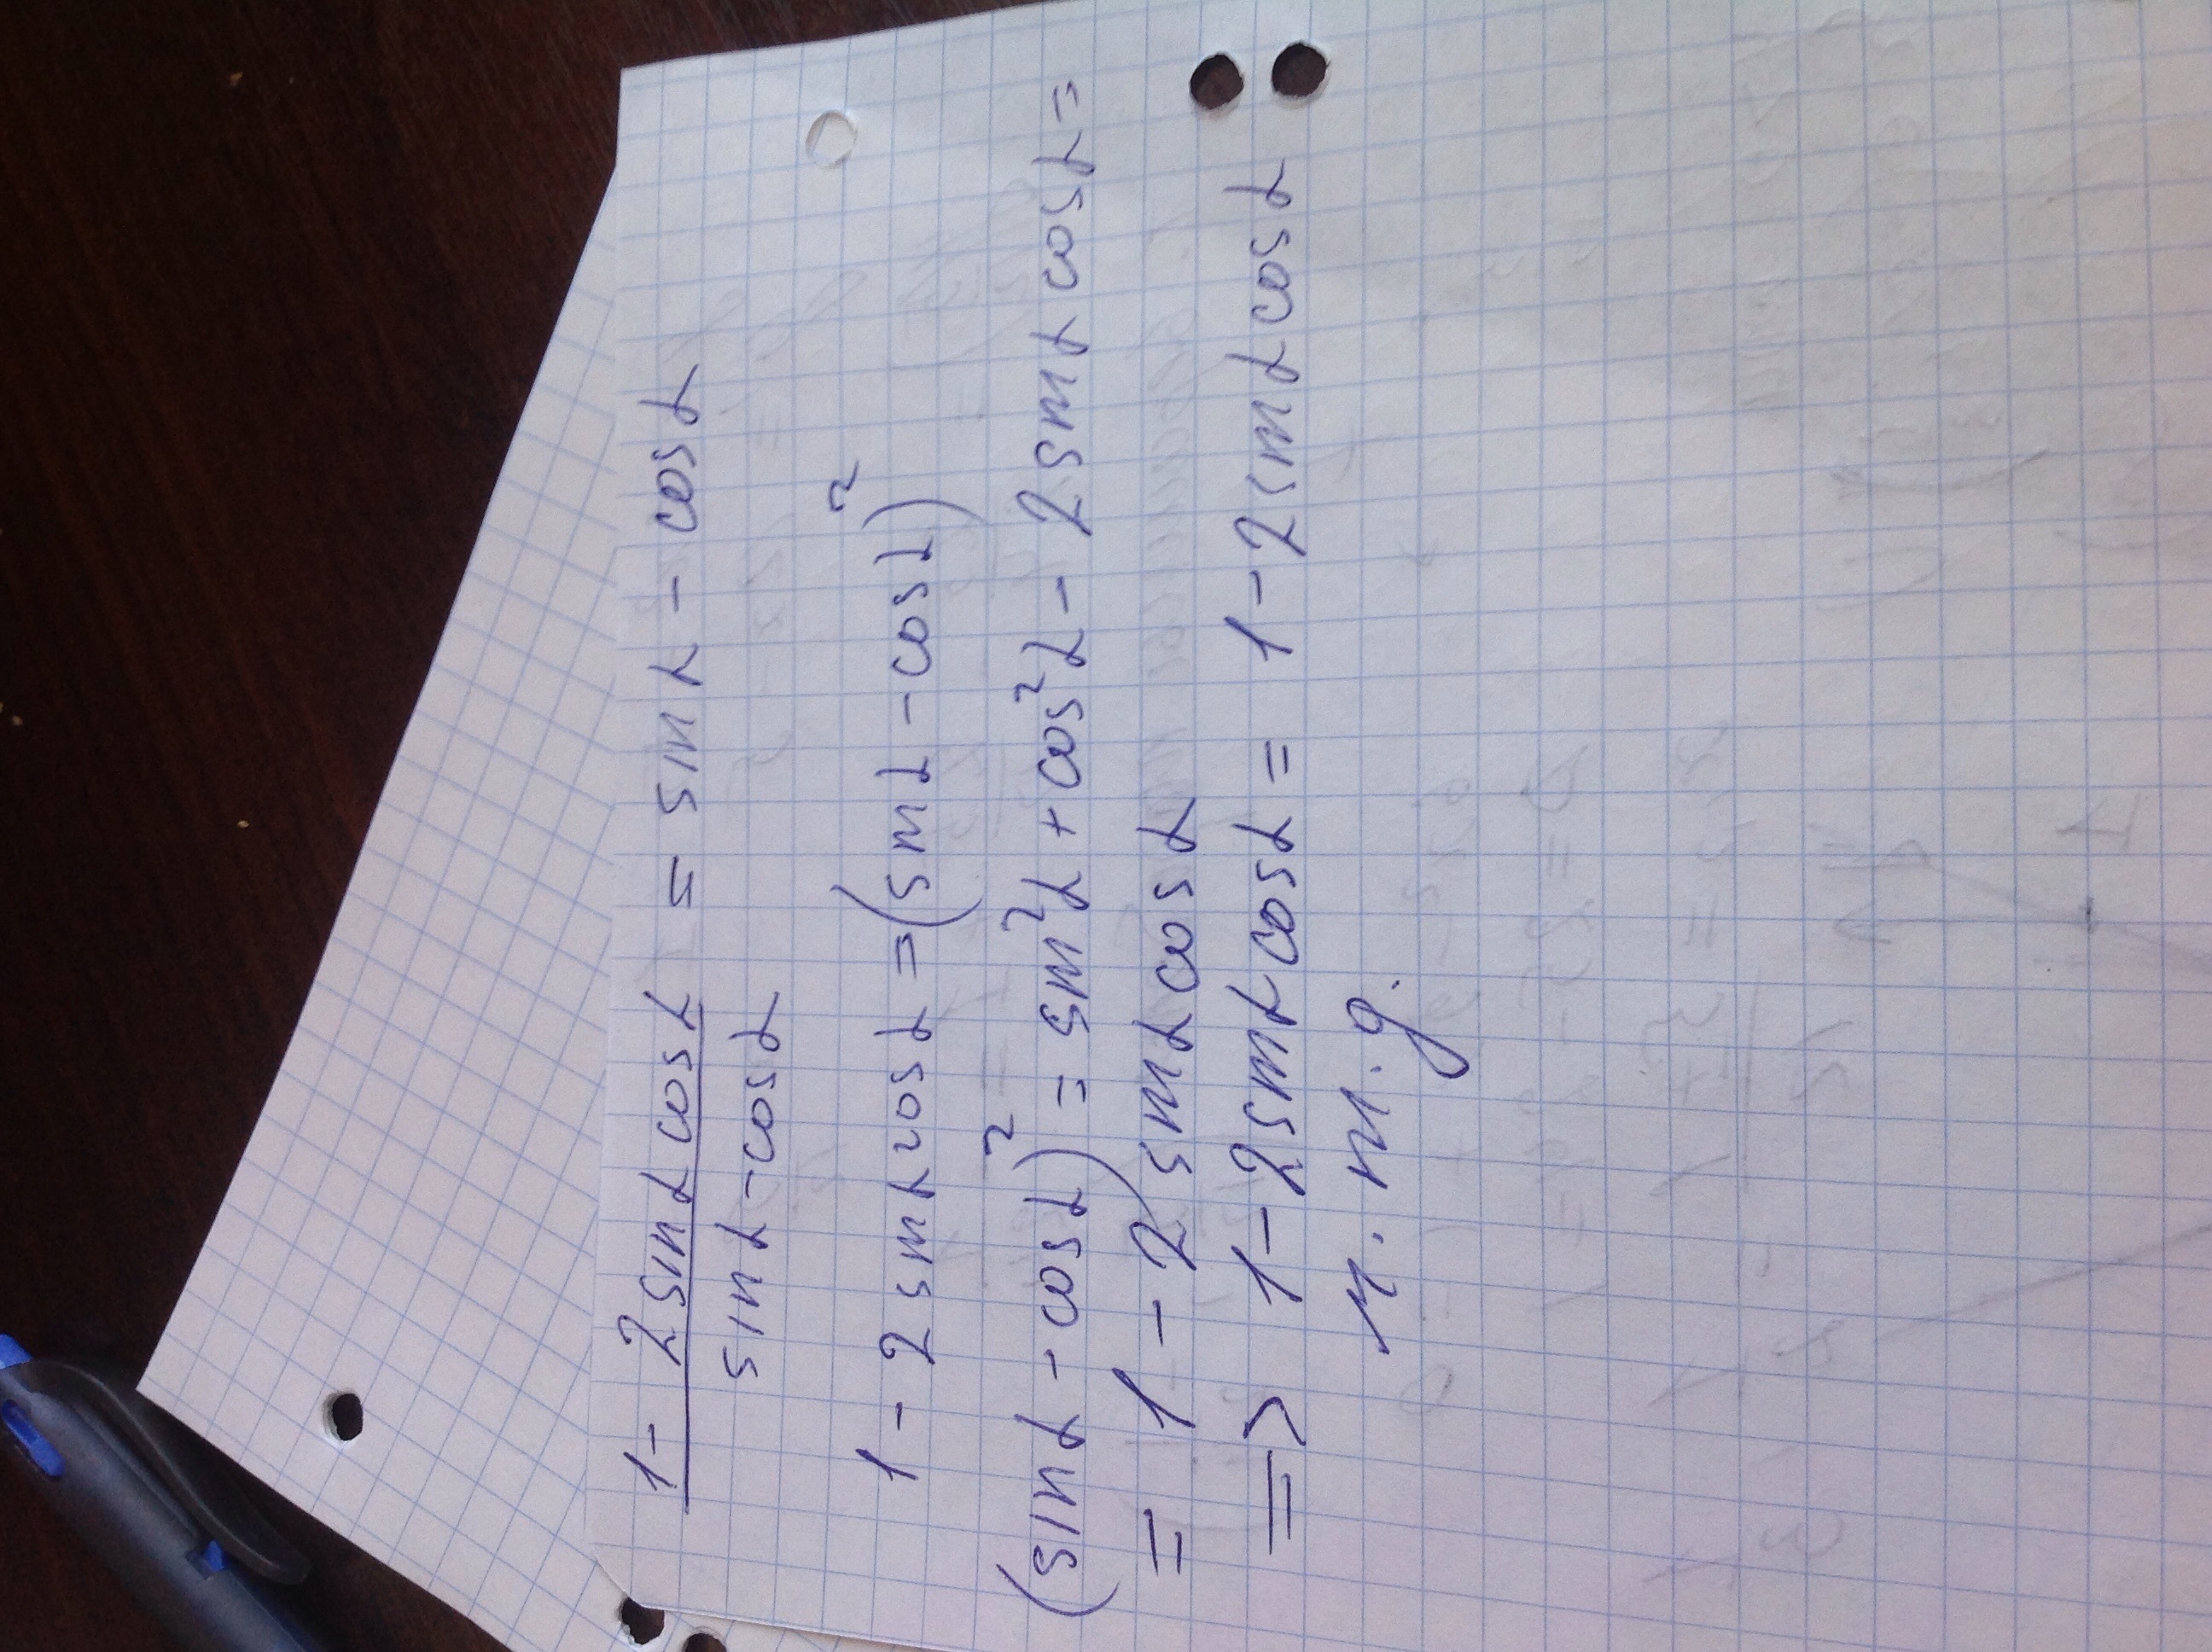 1 - 2 sin α cos α = sin α - cos α
sin α - cos α
1 - 2 sin α cos α = (sin α - cos α)²
(sin α - cos α)² = sin²α + cos²α - 2 sin α cos α =
= 1 - 2 sin α cos α
=> 1 - 2 sin α cos α = 1 - 2 sin α cos α
ч. т. д.